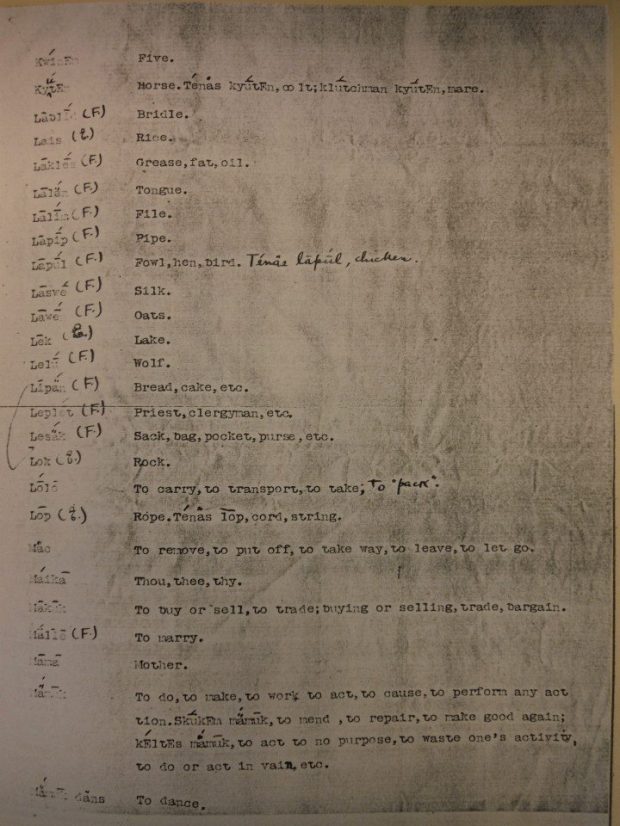 KwínEn Five.
KyǘtEn Horse. Ténās kyǘtEn, colt; klútchman kyǘtEn, mare.
(F.) Bridle.
Lais (E.) Rice.
Lāklés (F.) Grease, fat, oil.
(F.) Tongue.
(F.) File.
Lāpíp (F.) Pipe.
Lāpúl (F.) Fowl, hen, bird. Ténās lāpúl, chicken.
Lāswé (F.) Silk.
Lāwé (F.) Oats.
Lēk (E.) Lake.
Lelú (F.) Wolf.
Līpán (F.) Bread, cake, etc.
Leplét (F.) Priest, clergyman, etc.
Lesák (F.) Sack, bag, pocket, purse, etc.
Lok (E.) Rock.
Lólō To carry, to transport, to take; to "pack".
Lōp (E.) Rope. Ténās lōp, cord, string.
To remove, to put off, to take way, to leave, to let go.
Máikā Thou, thee, thy.
Mākúk To buy or sell, to trade; buying or selling, trade, bargain.
(F.) To marry.
Māmā Mother.
Mámūk To do, to make, to work to act, to cause, to perform any act
tion. SkúkEm mámūk, to mend , to repair, to make good again;
kEltEs mámūk, to act to no purpose, to waste one's activity,
to do or act in vain, etc.
Mámūk dāns To dance.